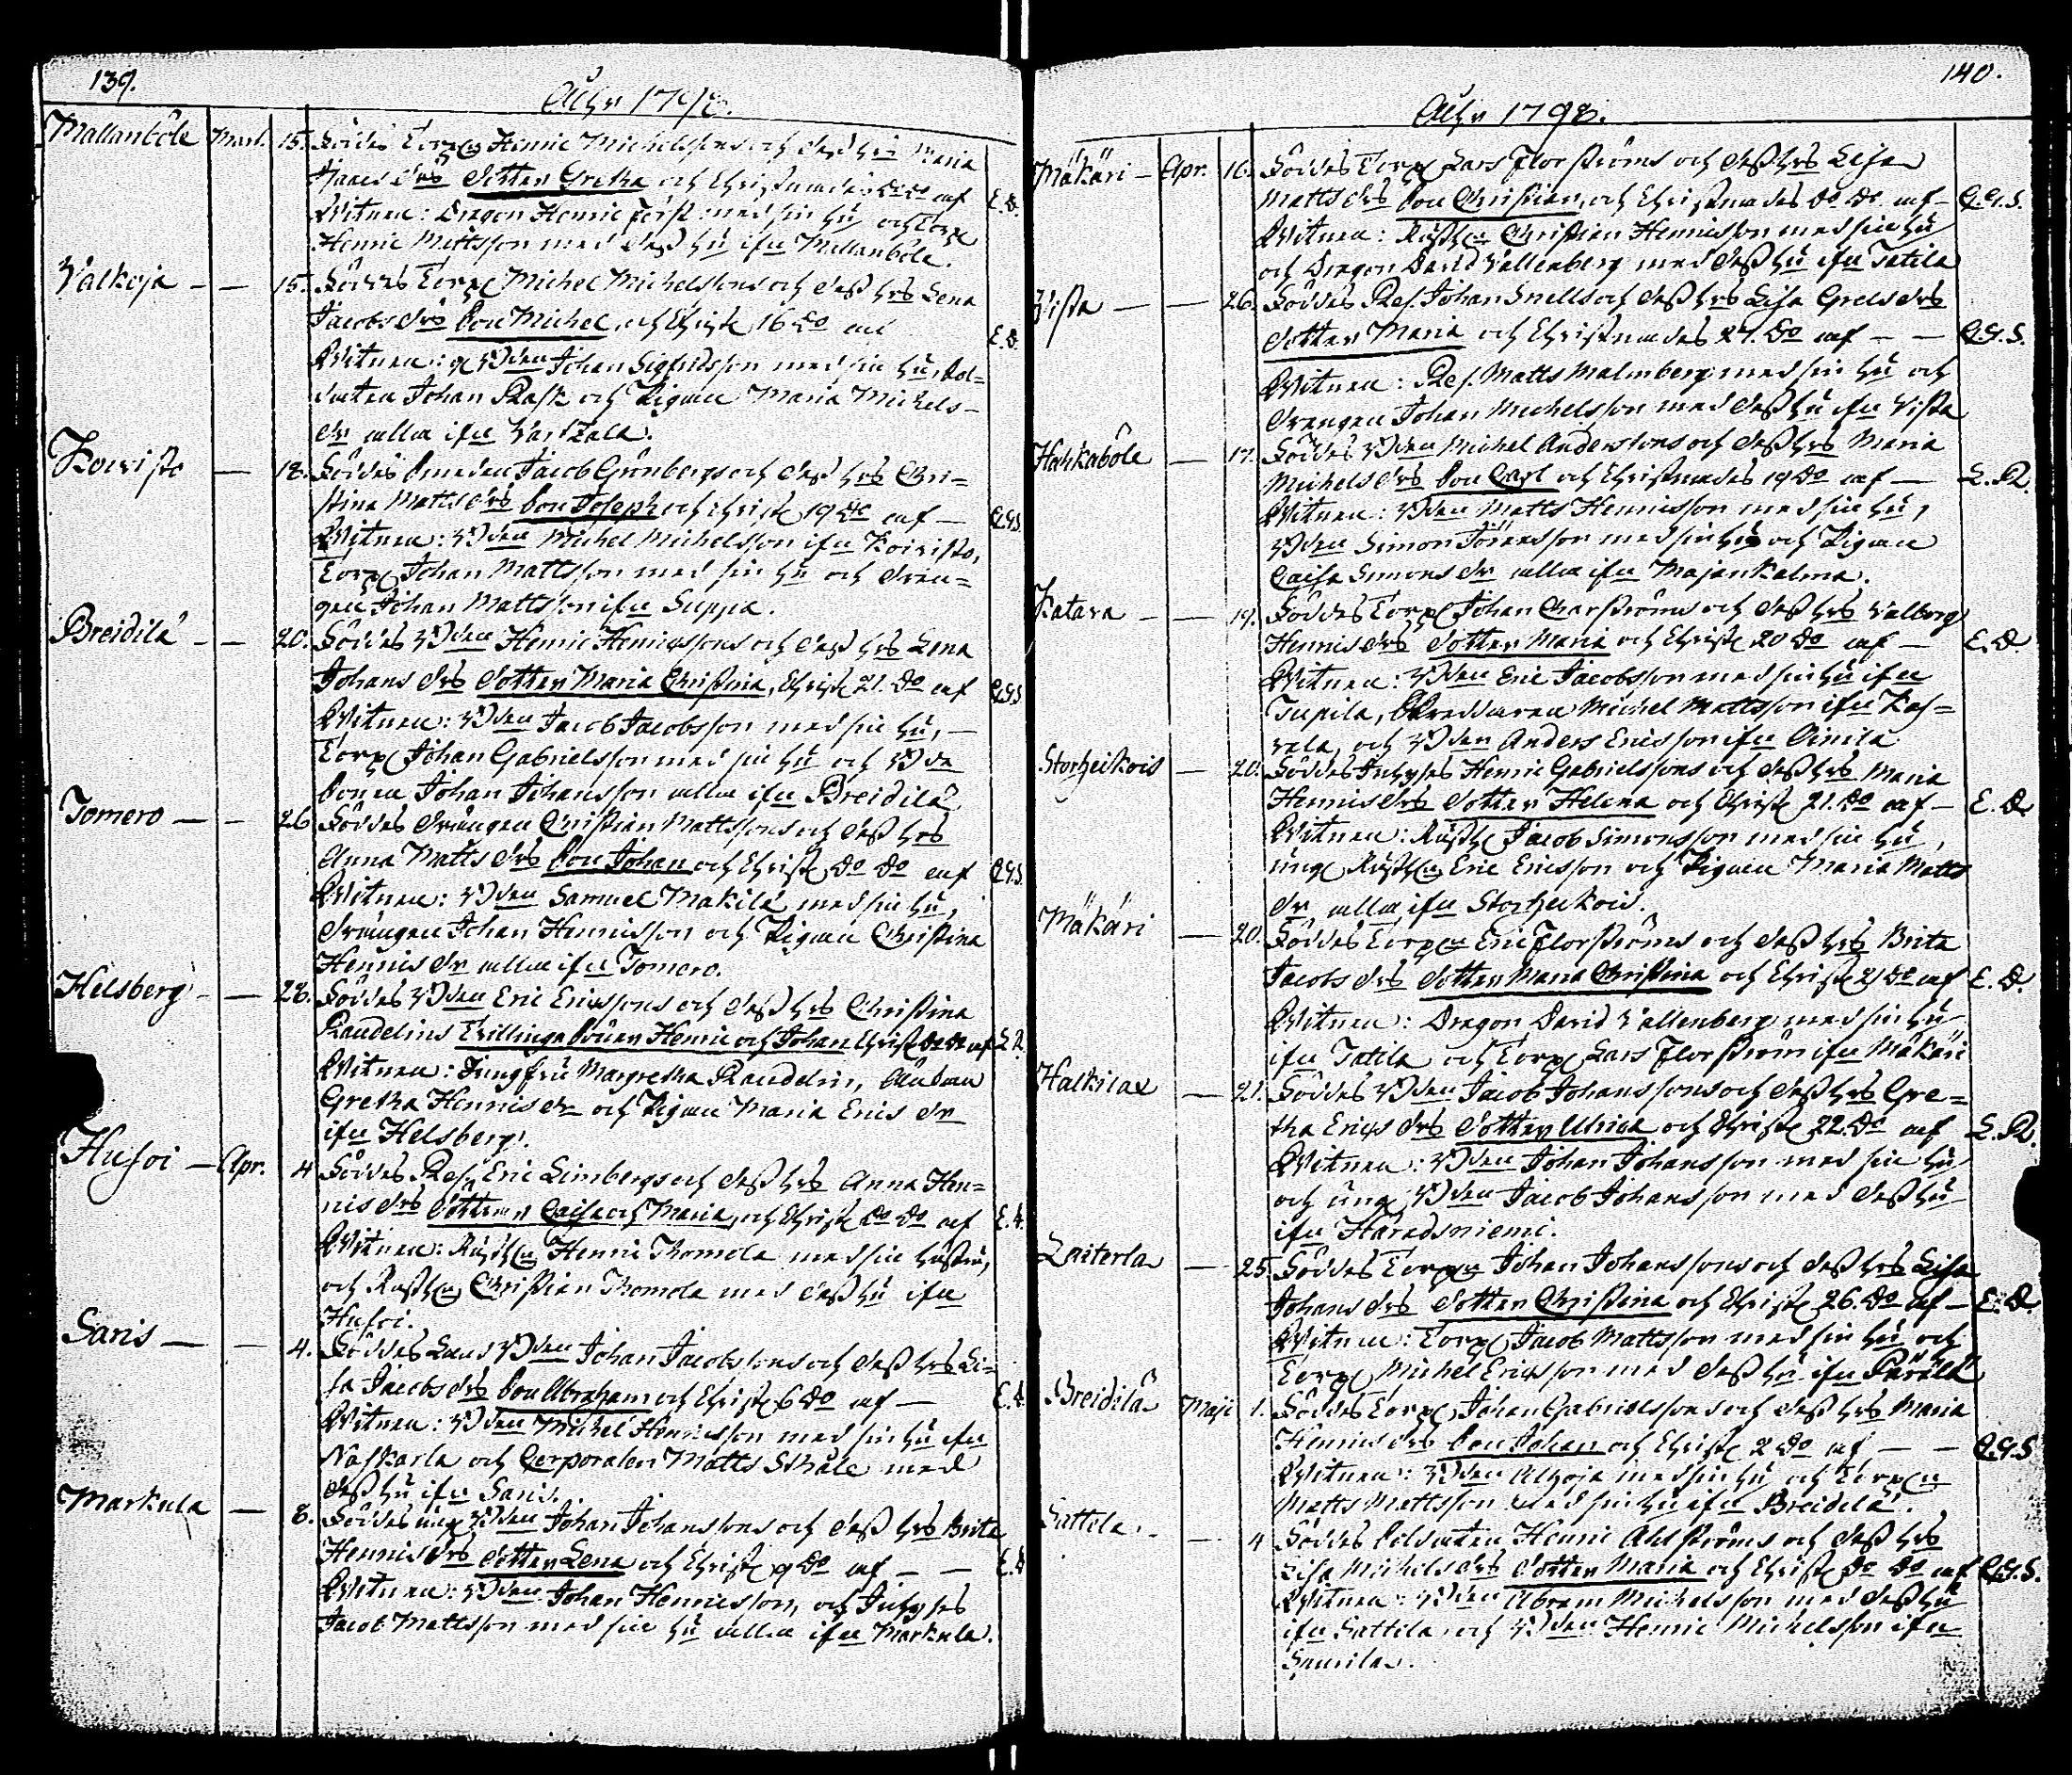 139.
Åhr 1798.
Mallanböle Mart. 15. Föddes Torp. Henric Michelssons och dess hs Maria
Isacs drs dotter Gretha och Christnades do do af E.D.
Witnen: Dragon Henric Förss med sin hu och Torp.
Henric Mattsson med dess hu ifrn Mallanböle.
Valkoja — — 15. Föddes Torp. Michel Michelssons och dess hrs Lena
Jacobs drs Son Michel, och Christ. 16 do af E.D.
Witnen: Johan Sigfridsson med sin hu, Sol-
daten Johan Rask och Pigan Maria Michels-
dr alla ifrn
Koivisto — 18. Föddes Smeden Jacob Grönbergs och dess hrs Chri-
stina Matts drs Son Joseph och Christ. 19 do af — G.G.S.
Witnen: Bden Michel Michelsson ifrn Koivisto,
Torp. Johan Mattsson med sin hu och Drän-
gen Johan Mattsson ifrn Suppia.
Breidilä — — 20. Föddes Bden Henric Henricssons och dess hrs Lena
Johans drs dotter Maria Christina, Christ. 21. do af G.G.S.
Witnen: Bden Jacob Jacobsson med sin hu, —
Torp. Johan Gabrielsson med sin hu och Bde
Sonen Johan Johansson alla ifrn Breidilä
Tomero — — 26 Föddes Drängen Christian Mattssons och dess hrs
Anna Matts drs Son Johan och Christ. do do af G.G.S.
Witnen: Bden Samuel Makila med sin hu,
Drängen Johan Henricsson och Pigan Christina
Henrics dr alla ifrn Tomero.
Helsberg — — 28. Föddes Bden Eric Ericssons och dess hrs Christina
Randelins Tvillinge Söner Henric och Johan Christ. do do af L.R.
Witnen: Jungfru Margretha Randelin,
Gretha Henrics dr och Pigan Maria Erics dr
ifrn Helsberg.
Hufoi — Apr. 4 Föddes Res. Eric Limbergs och dess hrs Anna Hen-
rics drs döttrar Caisa och Maria, och Christ. do do af E.D.
Witnen: Rusth. Henric Thomola med sin hustru,
och Rusth. Christian Thomola med dess hu ifrn
Hufoi.
Saris — — 4. Föddes Land Bden Johan Jacobssons och dess hrs Li-
sa Jacobs drs Son Abraham och Christ. 6 do af — E.D.
Witnen: Bden Michel Henricsson med sin hu ifrn
Naskarla och Corporalen Matts Stråle med
dess hu ifrn Saris.
Markula — 8. Föddes ung. Bden Johan Johanssons och dess hrs Brita
Henrics drs dotter Lena och Christ. 9 do af — — E.D.
Witnen: Bden Johan Henricsson, och Inhyses
Jacob Mattsson med sin hu alla ifrn Markula.
140.
Åhr 1798.
Mäkäri — Apr. 16. Föddes Torp. Lars Florströms och dess hrs Lisa
Matts drs Son Christian, och Christnades do do. af — G.G.S.
Witnen: Rusth. Christian Henricsson med sin hu
och Dragon David Vallenberg med dess hu ifrn Tatila
Vista — — 26. Föddes Res. Johan Snells och dess hrs Lisa Grels drs
dotter Maria och Christnades 27. do af — — G.G.S.
Witnen: Res. Matts Malmberg med sin hu och
Drengen Johan Michelsson med dess hu ifrn Vista
Hahkaböle — 17. Föddes Bden Michel Anderssons och dess hrs Maria
Michels drs Son Carl och Christnades 19 do af — L.R.
Witnen: Bden Matts Henricsson med sin hu,
Bden Simon Jöransson med sin hu och Pigan
Caisa Simons dr alla ifrn Majankalma.
Katara — — 19. Föddes Torp. Johan Charströms och dess hrs Valborg
Henrics drs dotter Maria och Christ. 20 do af — E.D
Witnen: Bden Eric Jacobsson med sin hu ifrn
Tupila, Skreddaren Michel Mattsson ifrn Kas-
vala, och Bden Anders Ericsson ifrn Ainila
Storheikois — 20. Föddes Inhyses Henric Gabrielssons och dess hrs Maria
Henrics drs dotter Helena och Christ. 21. do af — E.D
Witnen: Rusth. Jacob Simonsson med sin hu,
ung. Rusth. Eric Ericsson och Pigan Maria Matts
dr, alla ifrn Storheikois.
Mäkäri — 20. Föddes Torp. Eric Florströms och dess hrs Brita
Jacobs drs dotter Maria Christina och Christ. 21 do af E.D.
Witnen: Dragon David Vallenberg med sin hu
ifrn Tatila och Torp. Lars Florström ifrn Mäkäri
Halkilax — 21. Föddes Bden Jacob Johanssons och dess hrs Gre-
tha Erics drs dotter Ulrica och Christ. 22. do af L.R.
Witnen: Bden Johan Johansson med sin hu
och ung. Bden Jacob Johansson med dess hu
ifrn Haradsniemi.
Laiterla — 25. Föddes Torp. Johan Johanssons och dess hrs Lisa
Johans drs dotter Christina och Christ. 26. do af — E.D
Witnen: Torp. Jacob Mattsson med sin hu och
Torp. Michel Ericsson med dess hu ifrn Päräld
Breidilä Maji 1. Föddes Torp. Johan Gabrielssons och dess hrs Maria
Henrics drs Son Johan och Christ. 2 do af — — G.G.S
Witnen: Bden Alhoja med sin hu och Torp.
Matts Mattsson med sin hu ifrn Breidilä.
Sattela — — 4 Föddes Soldaten Henric Ahlströms och dess hrs
Lisa Michels drs dotter Maria och Christ. do do af G.G.S.
Witnen: Bden Abram Michelsson med dess hu
ifrn Sattela och Bden Henric Michelsson ifrn
Saurila.